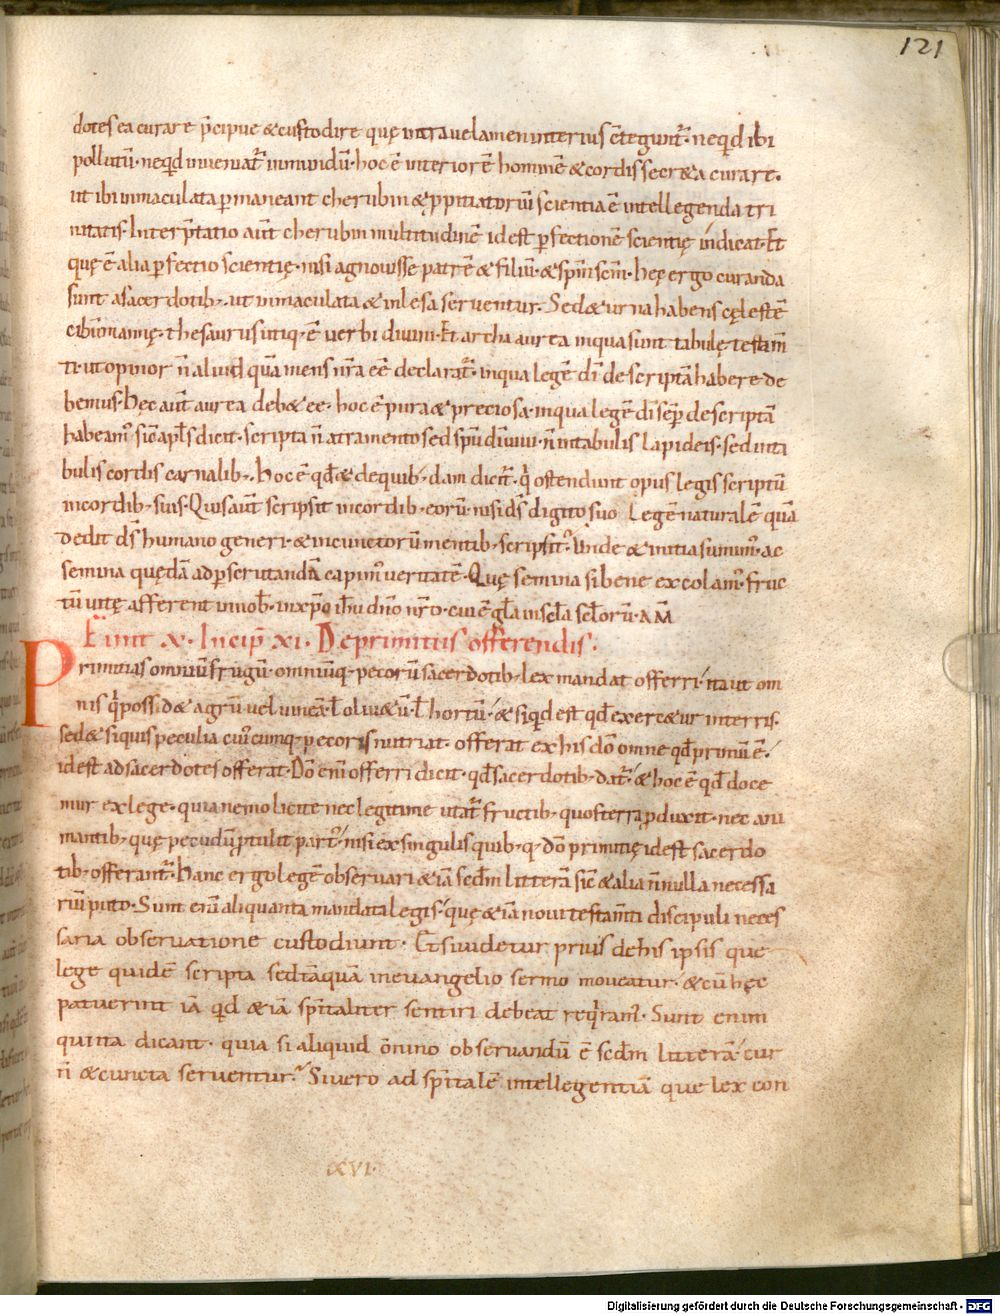 121
dotes ea curare p̄cipue &custodire quę intra uelamen interius c̄tegunt᷑· ne qd ibi
pollutū· ne qd inueniat᷑ inmundū· hoc ē interiorē hominē & cordis secr&a curare·
ut ibi inmaculata ꝑmaneant cherubin & ꝓpitiatoriū scientia ē intellegenda tri
nitatis· Interp̄tatio aut̄ cherubin multitudinē id est ꝑfectionē scientię indicat· Et
quę ē alia ꝑfectio scientię· nisi agnouisse patrē & filiū· & sp̄m sc̄m· hęc ergo curanda
sunt a sacerdotib;· ut inmaculata & inlesa seruentur· Sed & urna habens cęlestē
cibū mannę· thesaurus utiq; ē uerbi diuini· Et archa aurea in qua sunt tabulę testam̄
ti· ut opinor n̄ aliud quā mens nr̄a eē declarat᷑· in qua legē dī descriptā habere de
bemus· Hęc aut̄ aurea deb& eē· hoc ē pura & preciosa· in qua legē dī semp̄ descriptā
habeam᷒· sic̄ apl̄s dicit· scripta n̄ atramento sed sp̄u dī uiui· n̄ in tabulis lapideis· sed in ta
bulis cordis carnalib;· hoc ē qd̄ & de quib;dam dicit᷑· qi ostendunt opus legis scriptū
in cordib; suis· Quis aut̄ scripsit in cordib; eorū· nisi dš digito suo Legē naturalē quā
dedit dš humano generi· & in cunctorū mentib; scripsit· Unde & initia sumim᷒· ac
semina quędā ad ꝑscrutandā capim᷒ ueritatē· Quę semina si bene excolam᷒· fruc
tū uitę afferent in nob̄· in xp̄o ih̄u dn̄o nr̄o· cui ē gl̄a in sc̄la sc̄lorū· AM̄
Finit x· Incip̄ xi· De primitiis offerendis·
Primitias omniū frugū· omniūq; pecorū sacerdotib; lex mandat offerri· ita ut om
nis qi possid& agrū uel uineā ł oliu&ū ł hortū· & siqd est qd̄ exerc&ur in terris·
sed & si quis peculia cuiuscumq; pecoris nutriat· offerat ex his dō omne qd̄ primū ē·
id est ad sacerdotes offerat· Dō enī offerri dicit· qd̄ sacerdotib; dat᷑· & hoc ē qd̄ doce
mur ex lege· quia nemo licite nec legitime utat᷑ fructib; quos terra ꝓduxit· nec ani
mantib; quę pecudū ꝓtulit part᷒· nisi ex singulis quib;q; dō primitię id est sacerdo
tib; offerant᷑· Hanc ergo legē obseruari &iā scdm̄ litterā sic̄ & alia n̄nulla necessa
riū puto· Sunt enī aliquanta mandata legis· quę &iā noui testam̄ti discipuli neces
saria obseruatione custodiunt· Et si uidetur prius de his ipsis que
lege quidē scripta sed tāquā in euangelio sermo moueatur· & cū hęc
patuerint iā qd &iā spītaliter sentiri debeat reqiram᷒· Sunt enim
qui ita dicant· quia si aliquid om̄ino obseruandū ē scdm̄ litterā· cur
n̄ & cuncta seruentur· Si uero ad spītalē intellegentiā que lex con
xvi·
Digitalisierung gefördert durch die Deutsche Forschungsgemeinschaft - DFG